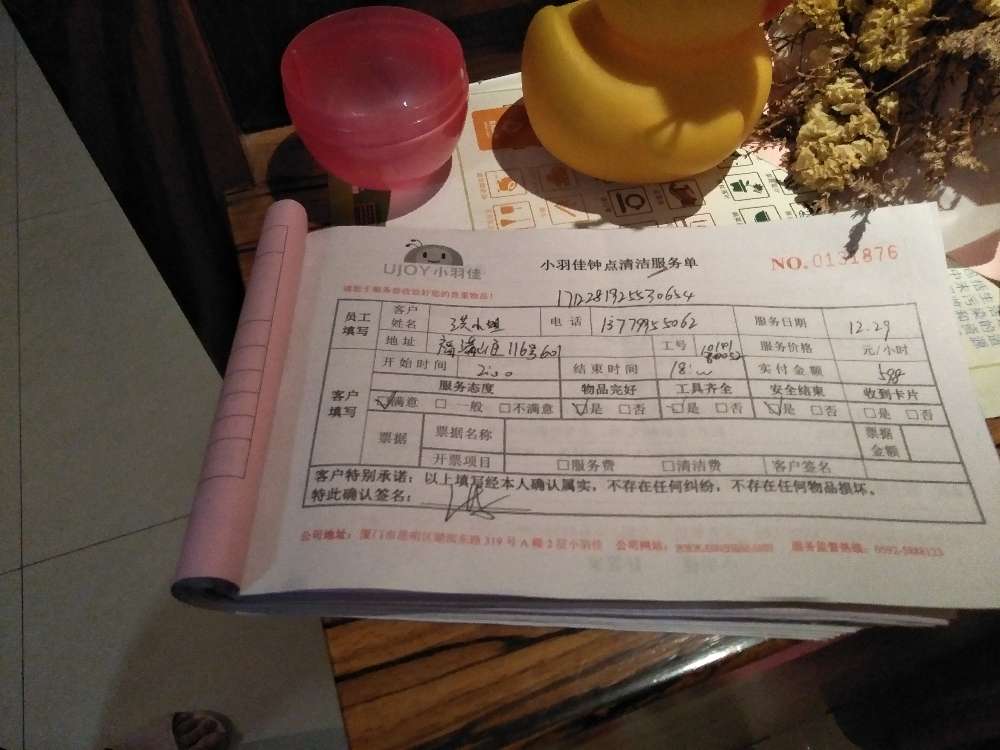 UJOY小羽佳
小羽佳钟点清洁服务单
NO.0131876
请您于服务前收放好您的贵重物品!
1712281925530654
员工填写
客户姓名
电话 13779955062 服务日期 12.29
地址 116号601 工号 服务价格 元/小时
客户填写
开始时间 结束时间 实付金额
服务态度 物品完好 工具齐全 安全结束 收到卡片
满意 □ 一般 □不满意 是 □否 是 □否 是 □否 □是 □否
票据 票据名称 票据金额
开票项目 □服务费 □清洁费 客户签名
客户特别承诺:以上填写经本人确认属实,不存在任何纠纷,不存在任何物品损坏。
特此确认签名:
公司地址:厦门市思明区湖滨东路319号A楼2层小羽佳 公司网站: 服务监督热线:0592-5888123